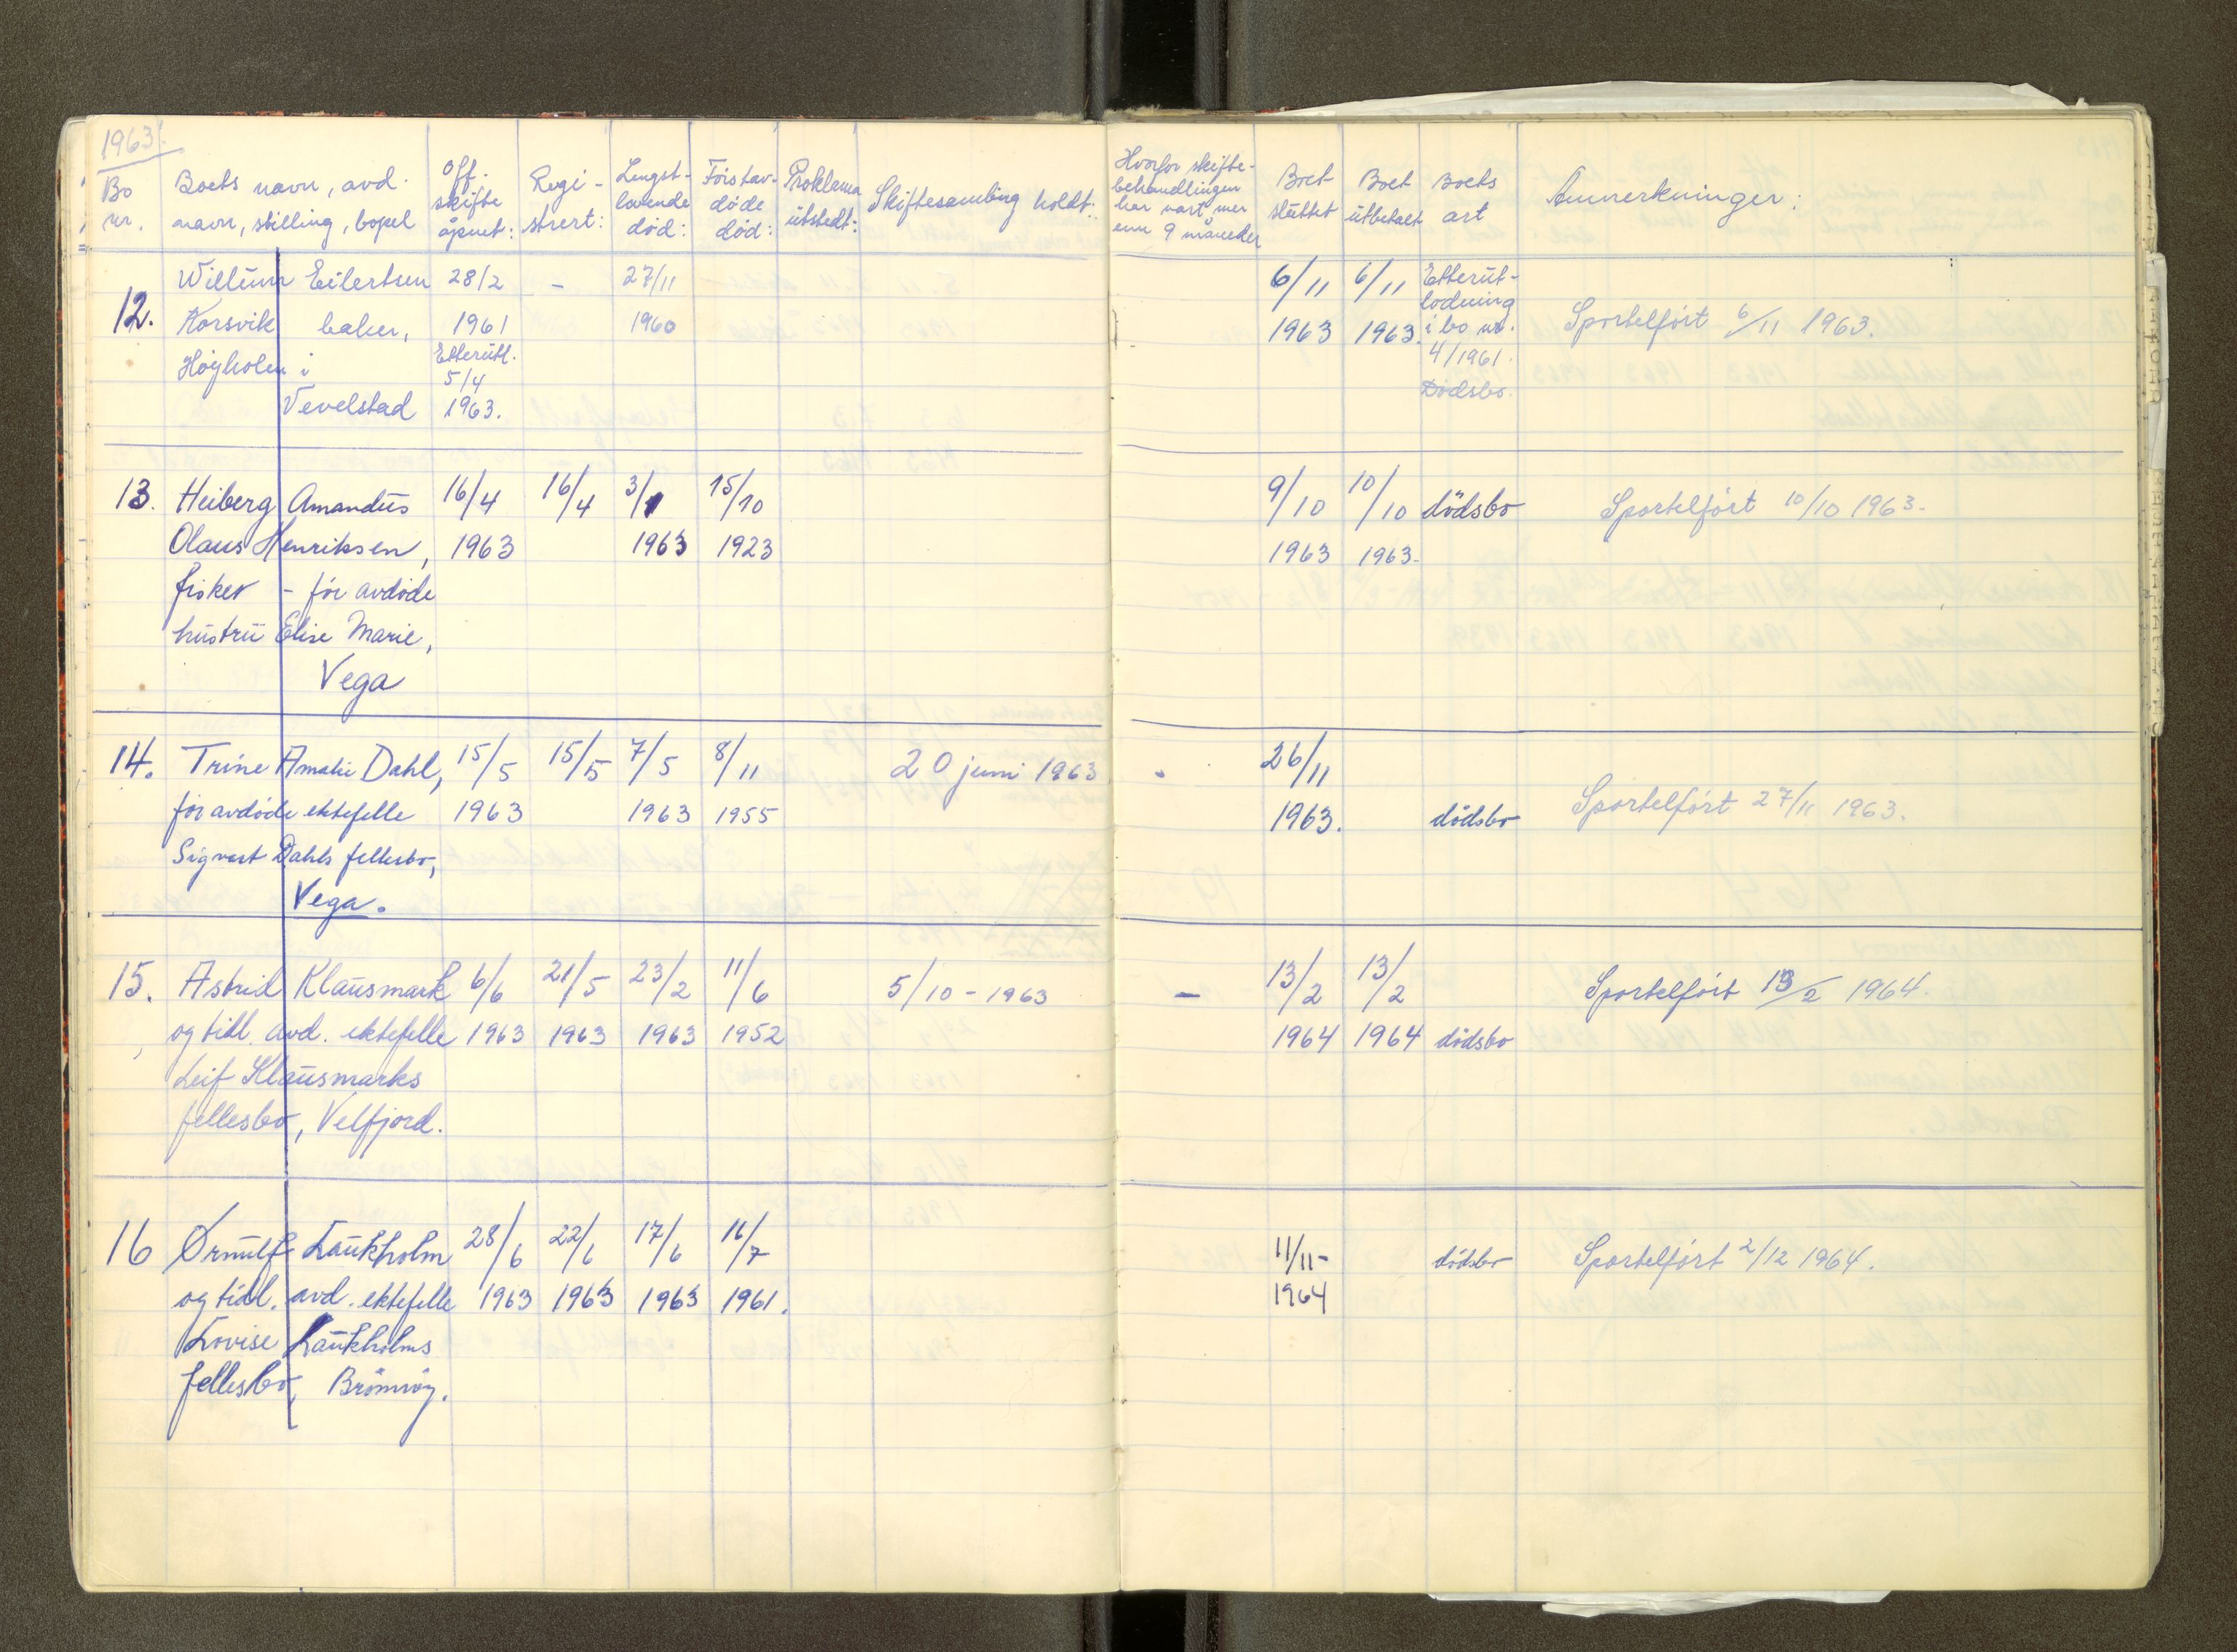 1963.
Bo nr.
Boets navn, avd. navn, stilling, bopel
Off. skifte åpnet:
Regi- strert:
Lengst- levende død:
Først av- døde død:
Proklama utstedt:
Skiftesamling holdt:
Hvorfor skifte- behandlingen har vart mer enn 9 måneder
Boet sluttet
Boet utbetalt
Boets art
Anmerkninger:
12. Willum Eilertsen 28/2 - 27/11 6/11 6/11 Etterut-
Korsvik baker, 1961 1960 1963 1963. lodning i bo nr. Sportelført 6/11 1963.
Høyholm i Etterutl. 4/1961.
5/4 Dødsbo.
Vevelstad 1963.
13. Heiberg Amandus 16/4 16/4 3/1 15/10 9/10 10/10 dødsbo Sportelført 10/10 1963.
Olaus Henriksen, 1963 1963 1923 1963 1963.
fisker - før avdøde
hustru Elise Marie,
Vega
14. Trine Amalie Dahl, 15/5 15/5 7/5 8/11 20 juni 1963 - 26/11
før avdøde ektefelle 1963 1963 1955 1963. dødsbo Sportelført 27/11 1963.
Sigvart Dahls fellesbo,
Vega.
15. Astrid Klausmark 6/6 21/5 23/2 11/6 5/10 - 1963 - 13/2 13/2 Sportelført 13/2 1964.
og tidl. avd. ektefelle 1963 1963 1963 1952 1964 1964 dødsbo
Leif Klausmarks
fellesbo, Velfjord.
16 Ørnulf Laukholm 28/6 22/6 17/6 16/7 11/11- dødsbo Sportelført 2/12 1964.
og tidl. avd. ektefelle 1963 1963 1963 1961. 1964
Lovise Laukholms
fellesbo, Brønnøy.